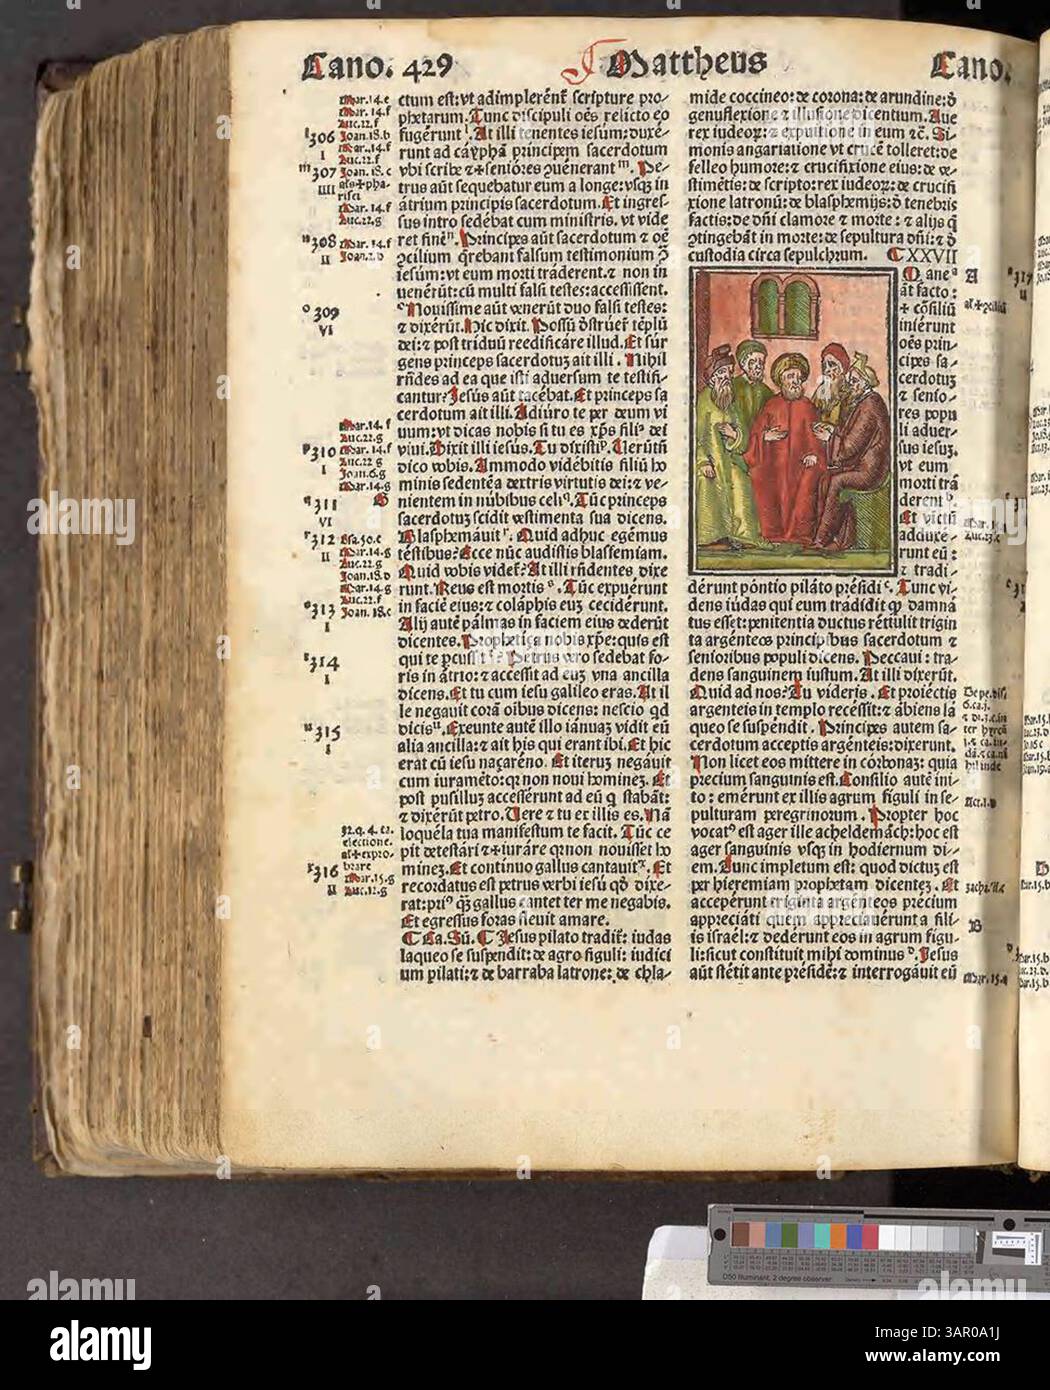 Cano. 429
Mattheus
Cano.
ctum est: vt adimplerent᷑ scripture pro-
phetarum. Tunc discipuli oēs relicto eo
fugērunt l. At illi tenentes iesum: duxē-
runt ad cáyphā principem sacerdotum
vbi scribe ⁊ + senióres ꝯuénerant m. Pe-
trus aūt sequebatur eum a longe: vsqꝫ in
átrium principis sacerdotum. Et ingres-
sus intro sedébat cum ministris. vt vide
ret finē n. Príncipes aūt sacerdotum ⁊ oē
ꝯcilium q̄rebant falsum testimonium ꝯ
iesūm: vt eum morti tráderent. ⁊ non in
uenērūt: cū multi falsi testes: accessissent.
o Nouissime aūt venérūt duo falsi testes:
⁊ dixérūt. Hic dixit. Possū d̄struer̄ tēplū
dei: ⁊ post triduū reedificáre illud. Et sur
gens princeps sacerdotuꝫ ait illi. Nihil
rn̄des ad ea que isti aduersum te testifi-
cantur? Jesús aūt tacébat. Et princeps sa
cerdotum ait illi. Adiúro te per deum vi
uum: vt dicas nobis si tu es xp̄s fili9 dei
viui. Dixit illi iesús. Tu dixisti p. Uerūtn̄
dico vobis. Ammodo vidébitis filiū ho
minis sedentē a dextris virtutis dei: ⁊ ve-
nientem in núbibus celi q. Tūc princeps
sacerdotuꝫ scidit vestimenta sua dicens.
Blasphemáuit r. Quid adhuc egēmus
téstibus? Ecce nūc audistis blassemiam.
Quid vobis videt᷑? At illi rn̄dentes dixe
runt. Reus est mortis s. Tūc expuérunt
in faciē eius: ⁊ coláphis euꝫ cecidērunt.
Alij autē palmas in faciem eius dedérūt
dicentes. Prophetica nobis xp̄e: quis est
qui te ꝑcussit t? Petrus vero sedebat fo-
ris in átrio: ⁊ accessit ad euꝫ vna ancilla
dicens. Et tu cum iesu galileo eras. At il
le negauit corā oībus dicens: nescio qd
dicis u. Exeunte autē illo iánuaꝫ vidit eū
alia ancilla: ⁊ ait his qui erant ibi. Et hic
erat cū iesu naçaréno. Et iteruꝫ negáuit
cum iuramēto: qꝛ non noui homineꝫ. Et
post pusilluꝫ accessérunt ad eū q̄ stabāt:
⁊ dixérūt petro. Uere ⁊ tu ex illis es. Nā
loquéla tua manifestum te facit. Tūc ce
pit detestári ⁊ + iuráre qꝛ non nouisset ho
mineꝫ. Et continuo gallus cantauit x. Et
recordatus est petrus verbi iesu qð dixe-
rat: pri9 q̄ꝫ gallus cantet ter me negabis.
Et egressus foras fleuit amare.
¶ Ca. Sū. ¶ Jesus pilato tradit᷑: iudas
laqueo se suspendit: de agro figuli: iudici
um pilati: ⁊ de barraba latrone: de chla-
mide coccineo: de corona: de arundine: d̄
genuflexione ⁊ illusione dicentium. Aue
rex iudeoꝝ: ⁊ expuitione in eum ⁊c̄. Si-
monis angariatione vt crucē tolleret: de
felleo humore: ⁊ crucifixione eius: de ve-
stimētis: de scripto: rex iudeoꝝ: d̄ crucifi
xione latronū: de blasphemijs: d̄ tenebris
factis: de dn̄i clamore ⁊ morte: ⁊ alijs q̄
ꝯtingebāt in morte: de sepultura dn̄i: ⁊ d̄
custodia circa sepulchrum. ¶ XXVII
Mane a
āt facto:
+ cōsiliū
iniérunt
oēs prin-
cipes sa-
cerdotuꝫ
⁊ senio-
res popu
li aduer-
sus iesuꝫ.
vt eum
morti trá
derent b.
Et victū
adduxe-
runt eū:
⁊ tradi-
dérunt póntio piláto présidi c. Tunc vi-
dens iúdas qui eum tradidit qꝫ damná
tus esset: penitentia ductus réttulit trigin
ta argénteos principibus sacerdotum ⁊
senioribus populi dicens. Peccaui: tra-
dens sanguinem iustum. At illi dixérūt.
Quid ad nos? Tu videris. Et proiéctis
argenteis in templo recéssit: ⁊ ábiens la
queo se suspéndit. Principes autem sa-
cerdotum acceptis argénteis: dixérunt.
Non licet eos mittere in córbonaꝫ: quia
precium sanguinis est. Consilio autē ini-
to: emérunt ex illis agrum figuli in se-
pulturam peregrinorum. Propter hoc
vocat9 est ager ille acheldemách: hoc est
ager sanguinis vsqꝫ in hodiernum di-
em. Tunc impletum est: quod dictuꝫ est
per hieremiam prophetam dicenteꝫ. Et
accepérunt triginta argénteos précium
appreciáti quem appreciauérunt a fili
is israél: ⁊ dedérunt eos in agrum figu-
li: sicut constituit mihi dominus D. Jesus
aūt stétit ante présidē: ⁊ interrogáuit eū
Mar. 14. f
306
Joan. 18. b
I
307
Joan. 18. c
IIII
308
II
309
VI
310
I
311
VI
312
Esa. 50. c
II
313
Joan. 18. c
I
314
I
315
I
32. q. 4. ca.
electione.
al + expro-
brare
316
Mar. 15. g
II
A
B
Act. 1. d
Mar. 15. a
D50 Illuminant, 2 degree observer
alamy
Image ID: 3AR0A1J
www.alamy.com